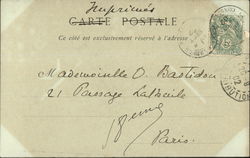 Imprimés
CARTE POSTALE
Ce côté est exclusivement réservé à l'adresse
Mademoiselle O. Bastidon
21 Passage
Paris